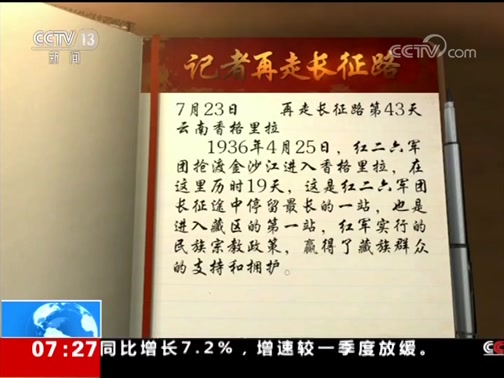 CCTV 13
新闻
CCTV.com
记者再走长征路
7月23日 再走长征路第43天
云南香格里拉
1936年4月25日，红二六军
团抢渡金沙江进入香格里拉，在
这里历时19天，这是红二六军团
长征途中停留最长的一站，也是
进入藏区的第一站，红军实行的
民族宗教政策，赢得了藏族群众
的支持和拥护。
07:27 同比增长7.2%，增速较一季度放缓。